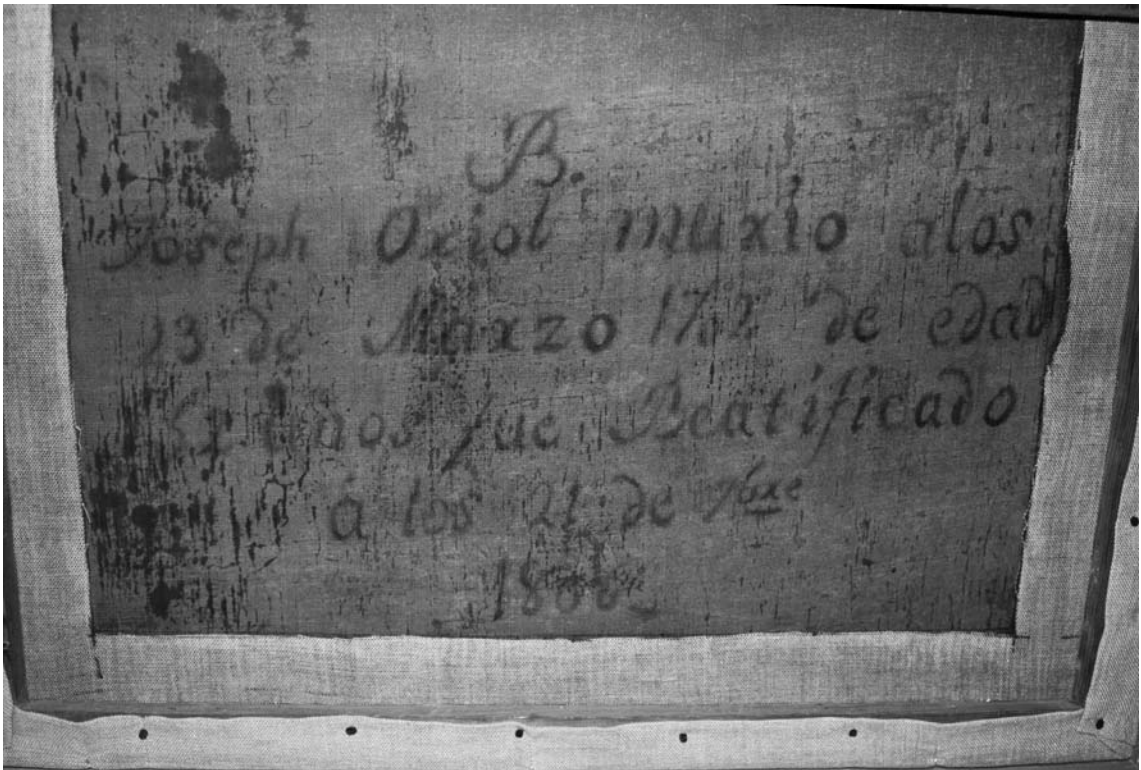 B.
Joseph Oriol murio alos
23 de Marzo 1702 de edad
años fue Beatificado
á los 21 de 7bre
1806